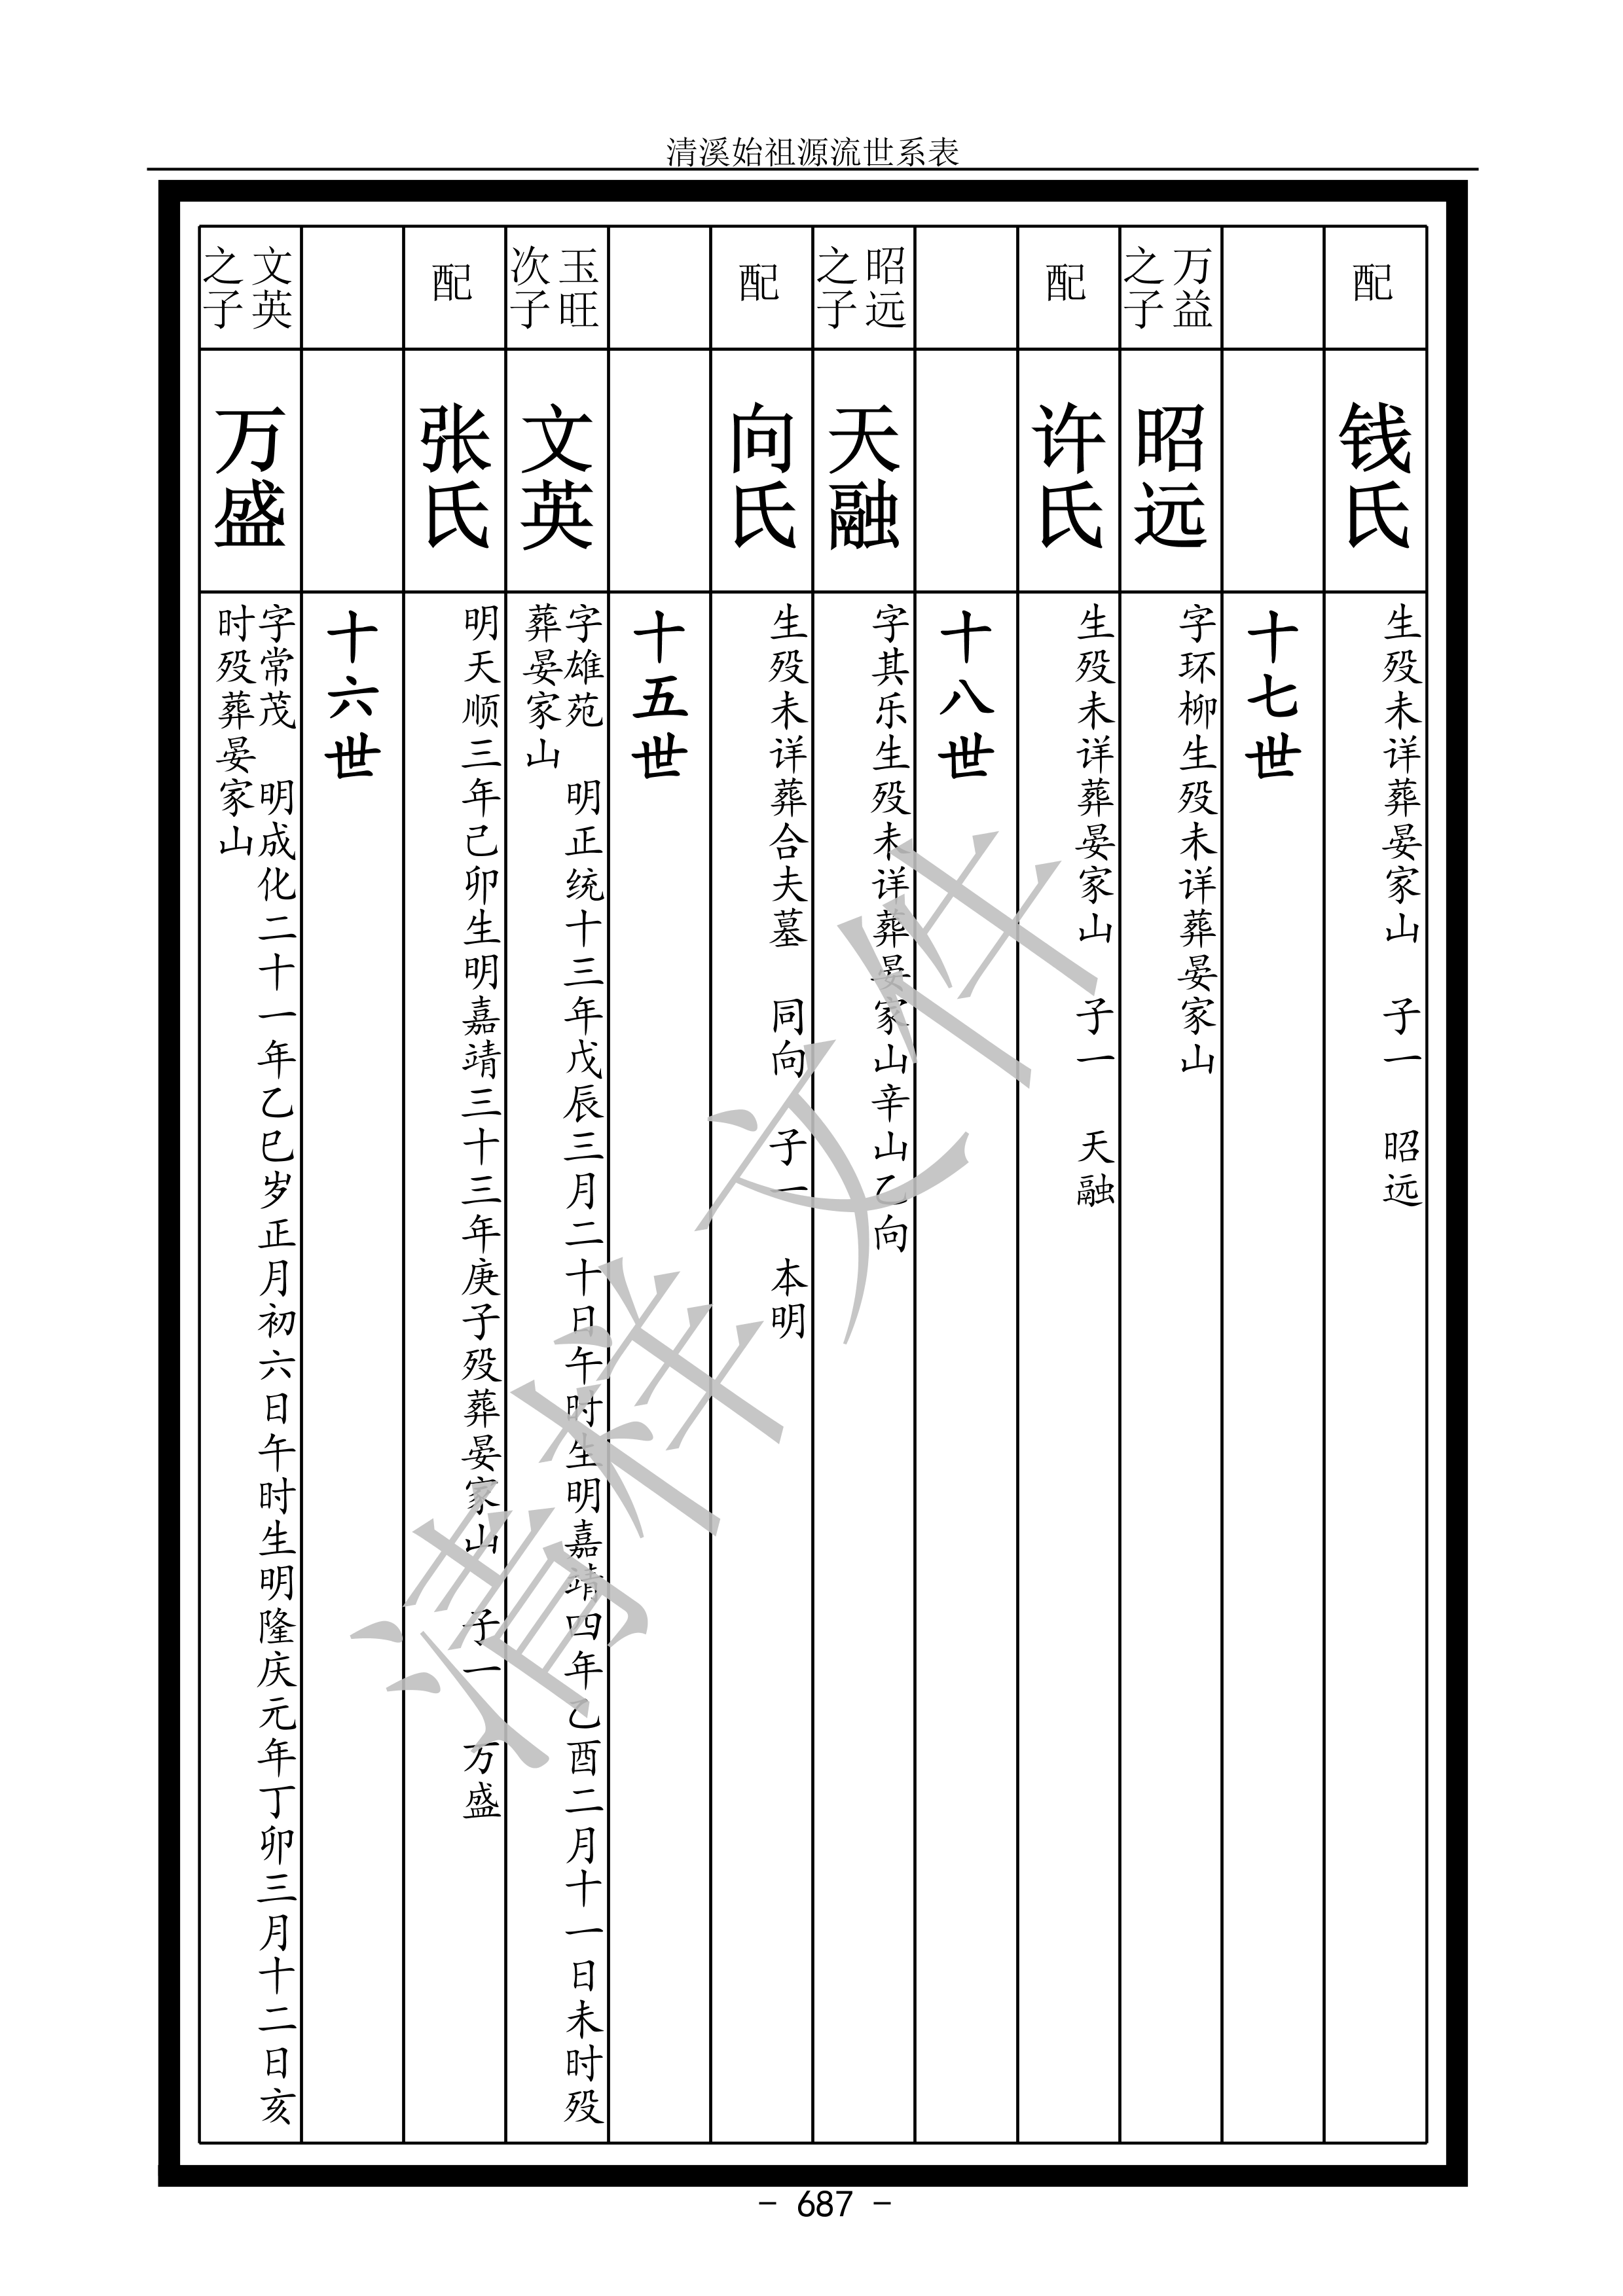 清溪始祖源流世系表
配
钱氏
生殁未详葬晏家山　子一　昭远
十七世
万益
之子
昭远
字环柳生殁未详葬晏家山
配
许氏
生殁未详葬晏家山　子一　天融
十八世
昭远
之子
天融
字其乐生殁未详葬晏家山辛山乙向
配
向氏
生殁未详葬合夫墓　同向　子一　本明
十五世
玉旺
次子
文英
字雄苑　明正统十三年戊辰三月二十日午时生明嘉靖四年乙酉二月十一日未时殁
葬晏家山
配
张氏
明天顺三年己卯生明嘉靖三十三年庚子殁葬晏家山　子一　万盛
十六世
文英
之子
万盛
字常茂　明成化二十一年乙巳岁正月初六日午时生明隆庆元年丁卯三月十二日亥
时殁葬晏家山
清样文件
- 687 -